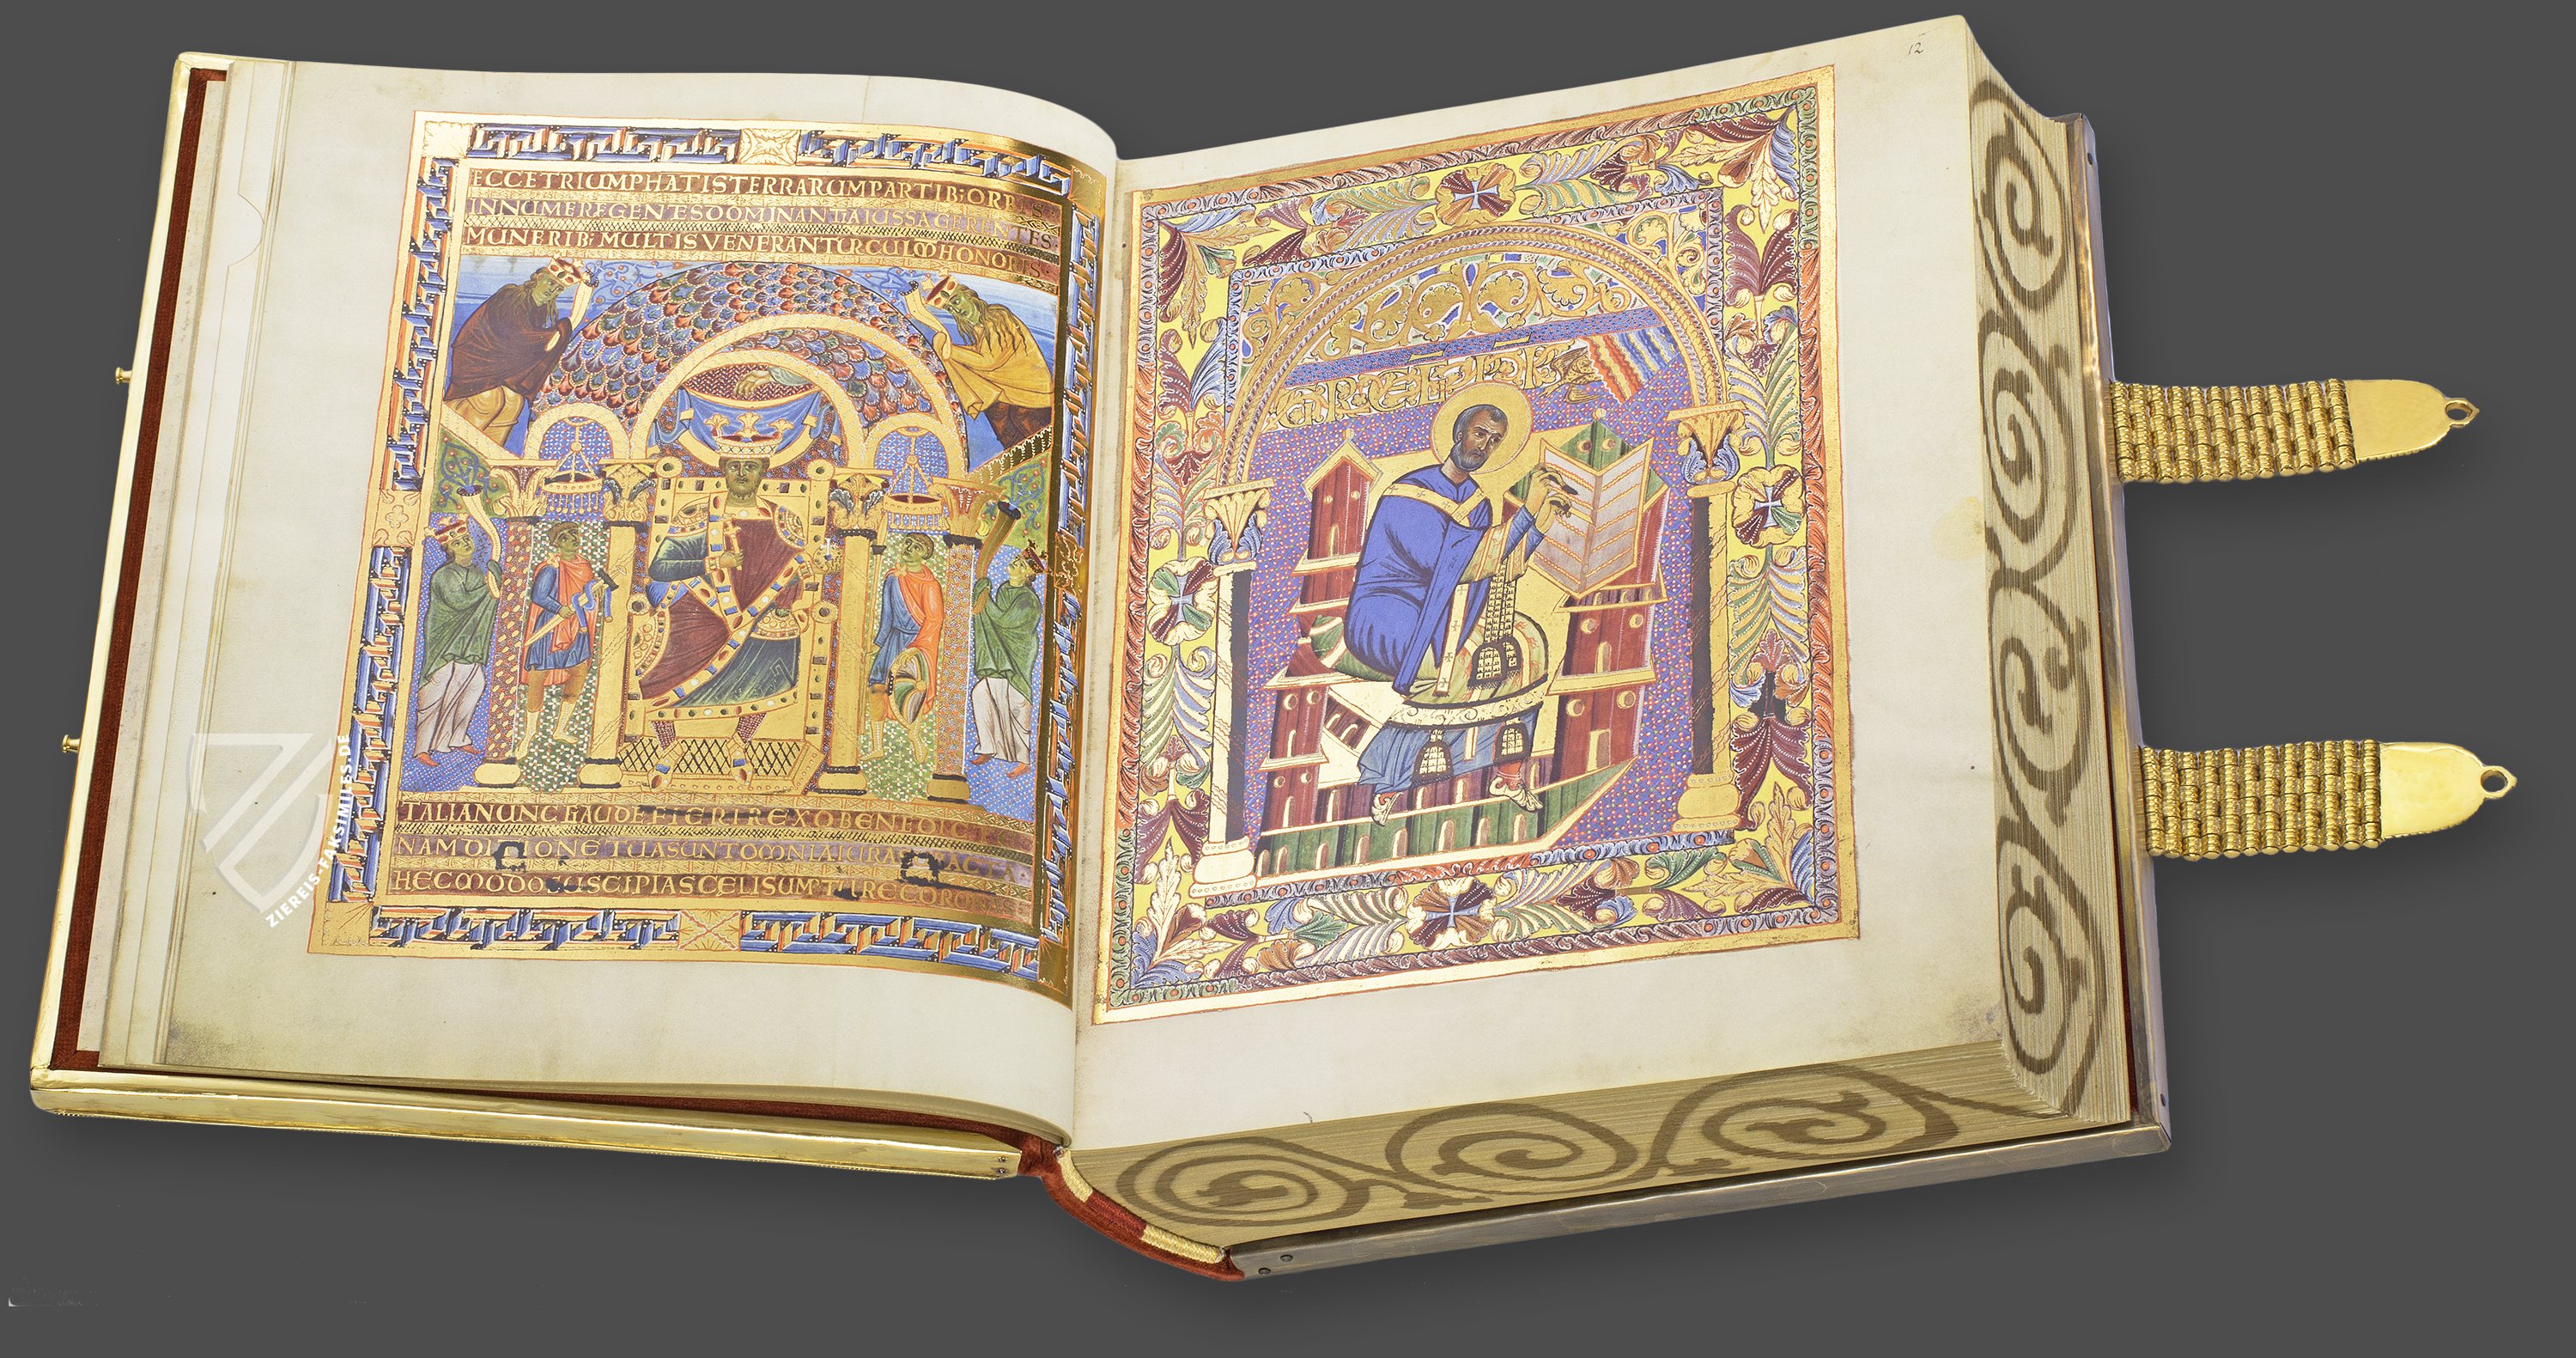 ECCETRIUMPHATISTERRARUMPARTIB;ORBIS
INNUMEREGENTESDOMINANTIAIUSSAGERENTES
MUNERIB;MULTISVENERANTURCULMHONORIS
TALIANUNCGAUDEFIERIREXOBENEDICTE
NAMDICIONETUASUNTOMNIAIURA
HECMODOSUSCIPIASCELISUMPTURECORONAS
12
ZIEREIS-FAKSIMILES.DE